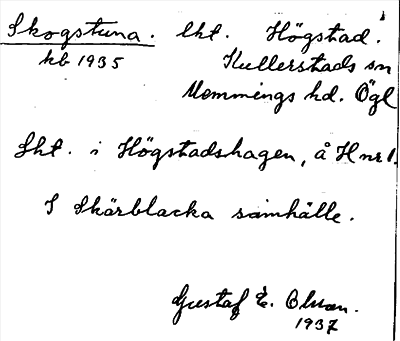 Skogstuna. lht. Högstad.
hb 1935 Kullerstads sn
Memmings hd. Ögl
Lht. i Högstadshagen, å H nr 1.
I Skärblacka samhälle.
Gustaf E. Olsson.
1937